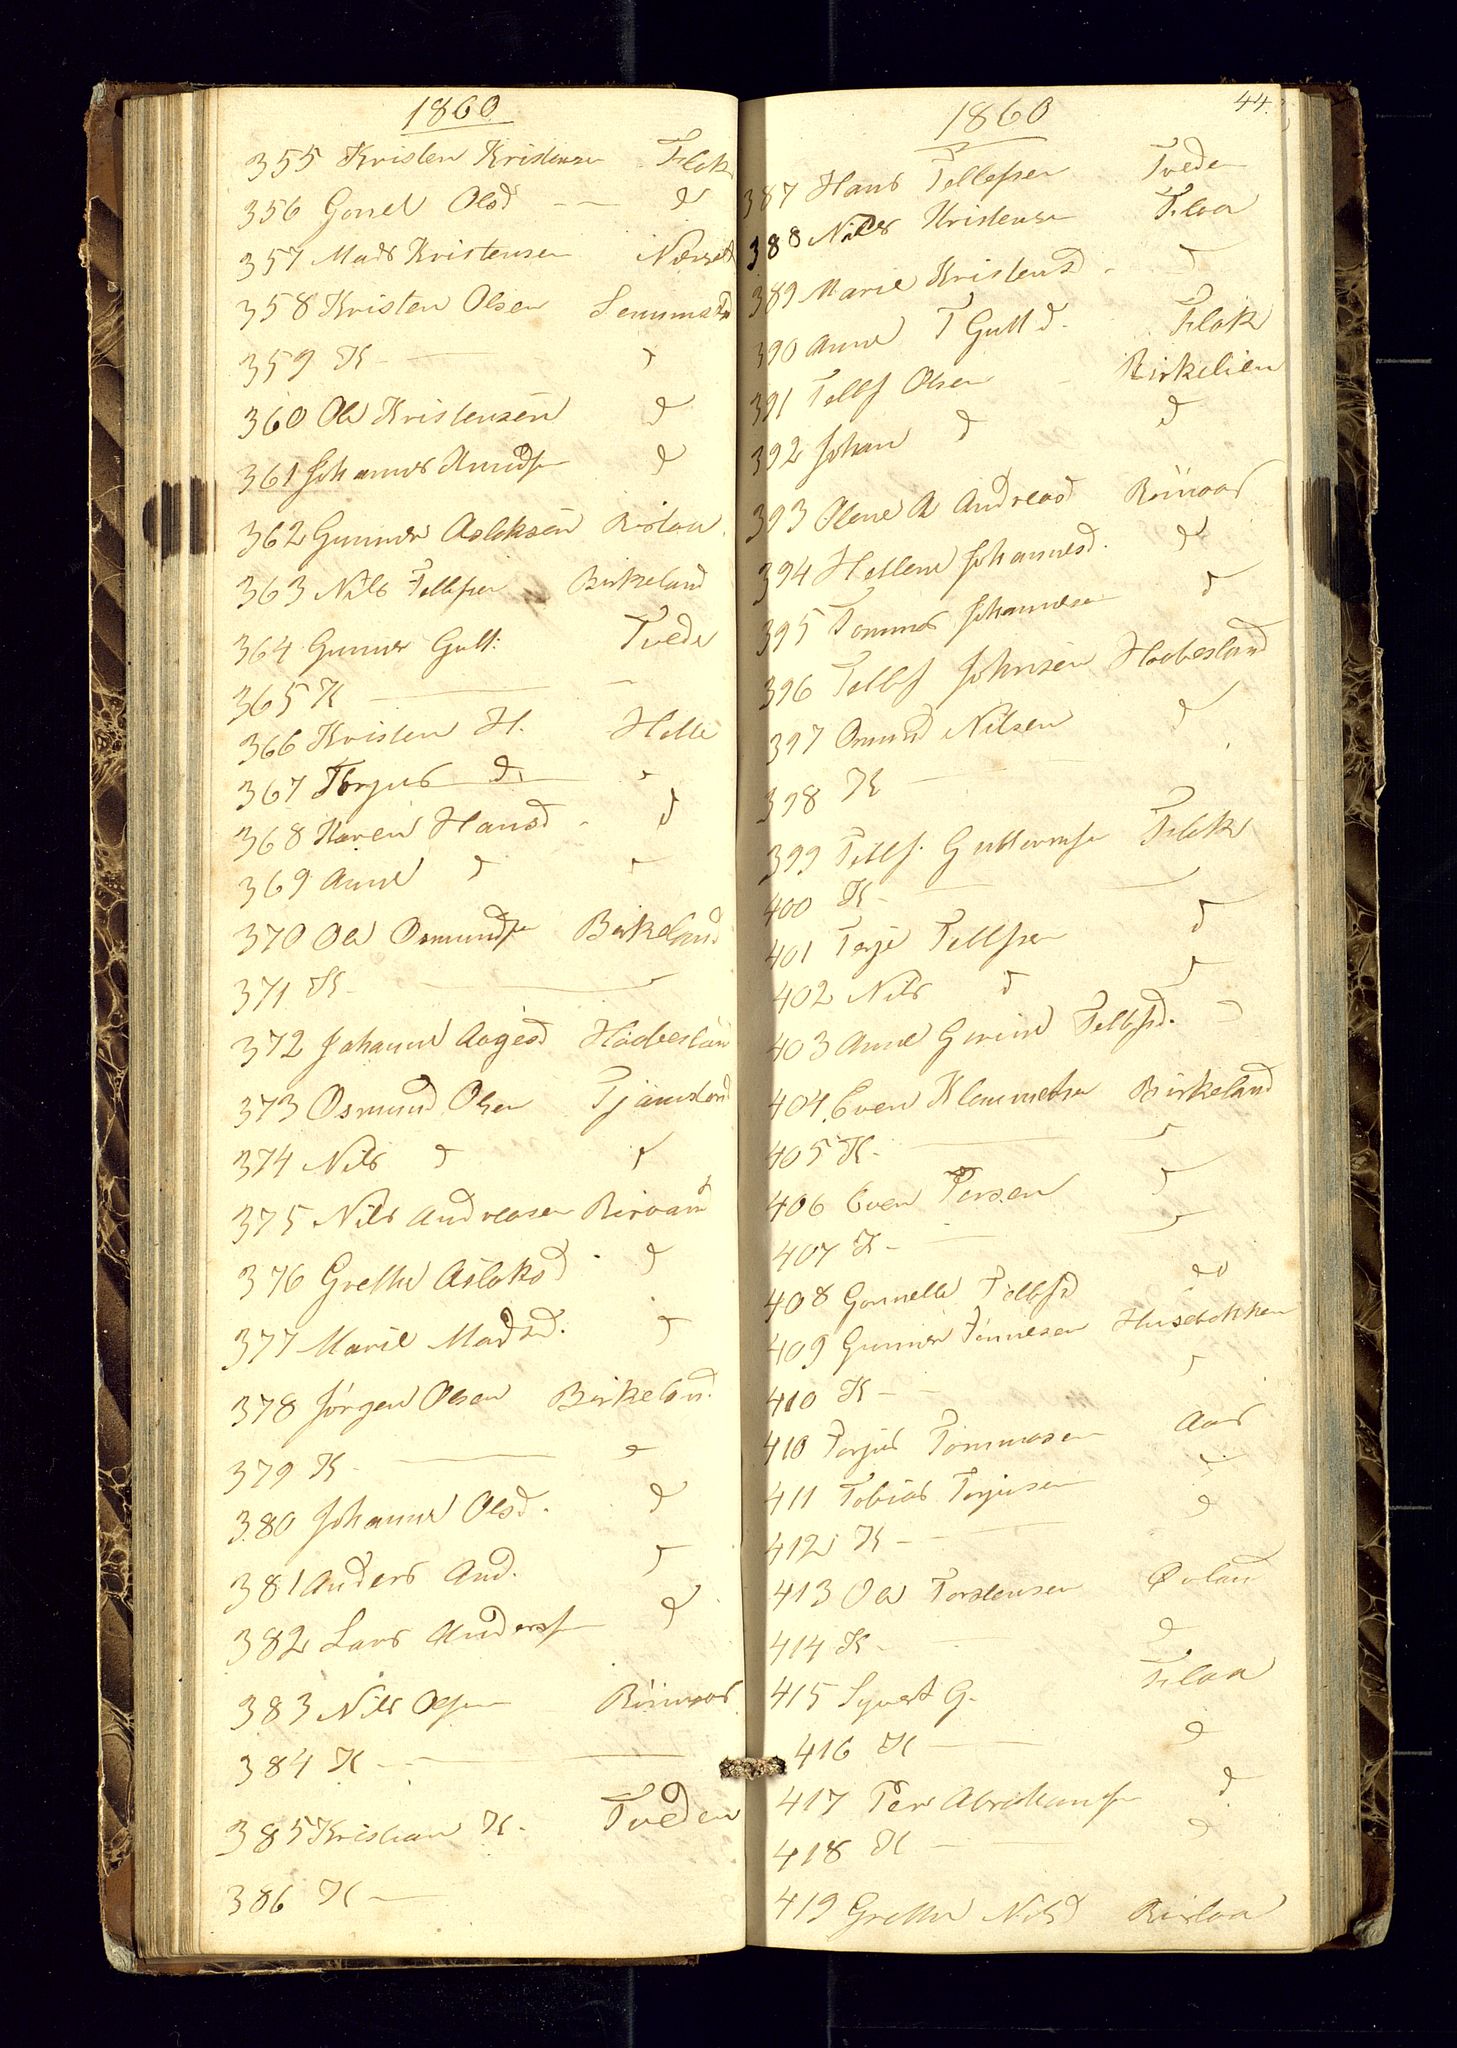 1860
355 Kristen Kristensen Flak
356 Gonel Olsd — — d
357 Mads Kristensen
358 Kristen Olsen
359 K — d
360 Ole Kristensen d
361 Johannes Knudsen d
362 Gunner Aslaksen Rislaa
363 Nils Tellefsen Birkeland
364 Gunner Gutt. Tvede
365 K — —
366 Kristen H. Helle
367 Torjus d. d
368 Karen Hansd - d
369 Anne d d
370 Ole Osmunds Birkeland
371 K — —
372 Johanne Aagesd Haabesland
373 Osmund Olsen Tjämsland
374 Nils d d
375 Nils Andreasen
376 Grethe Aslaksd d
377 Marie Madsd. d
378 Jørgen Olsen Birkeland.
379 K — d
380 Johanne Olsd. d
381 Anders And. d
382 Lars Andersen d
383 Nils Olsen
384 K — —
385 Kristian K. Tveden
386 K —
44.
1860
387 Hans Tellefsen Tveden
388 Nils Kristensen Flaa
389 Marie Kristensd - d
390 Anne T Guttd. Flak
391 Tellf Olsen Birkelien
392 Johan d d
393 Olene A Andreasd
394 Hellene Johannesd. d
395 Tommas Johannesen d
396 Tellf Johnsen Haabesland
397 Osmund Nilsen d
398 K —
399 Tellf. Guttormsen Flak
400 K —
401 Terje Tellfsen d
402 Nils d d
403 Anne Gurine Tellfsd. d
404 Even Klemmetsen Birkeland
405 K. — d
406 Even Persen d
407 K —
408 Gunnelle Tellfsd do
409 Gunner Tønnesen Husebakken
410 K — — d
410 Torjus Tommasen Aas
411 Tobias Torjusen d
412 K — d
413 Ole Torstensen
414 K — d
415 Syvert G. Flaa
416 K — d
417 Per Abrahamsen d
418 K — d
419 Grethe Nilsd Rislaa